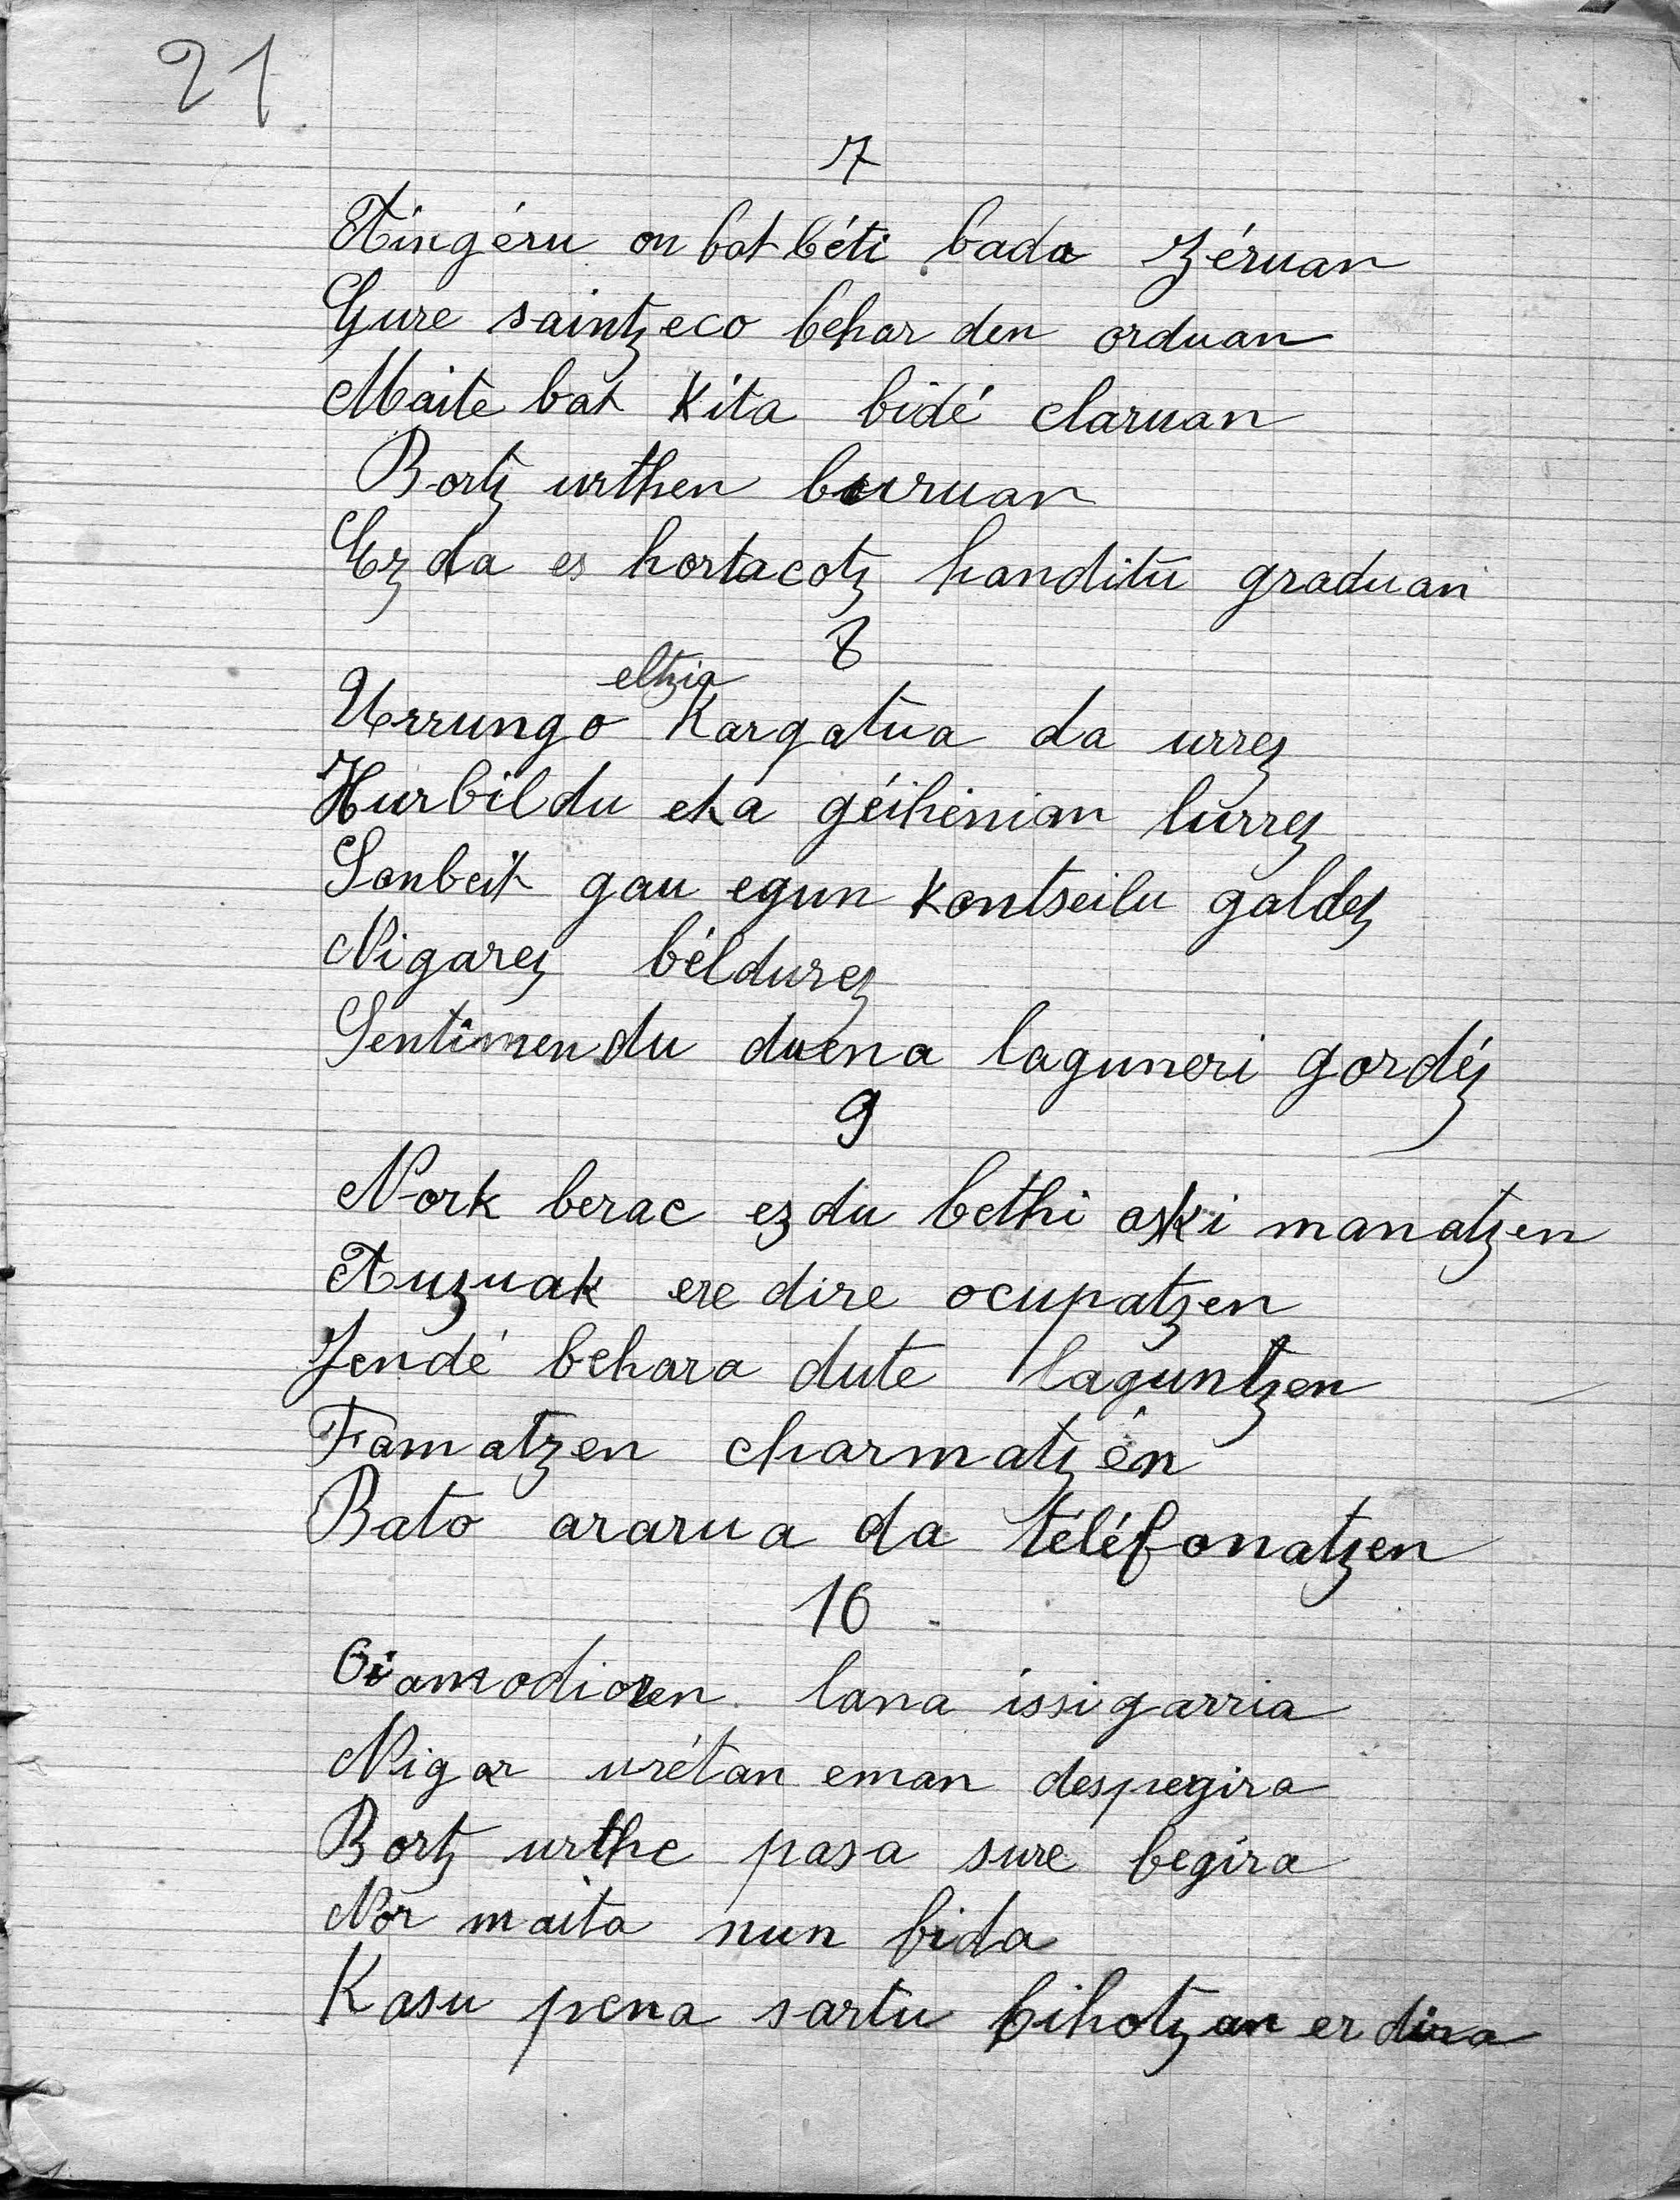 21
7
Aingéru on bat béti bada zéruan
Gure saintzeco behar den orduan
Maite bat kita bidé claruan
Bortz urthen buruan
Ez da es hortacotz handitu graduan
8
eltzia
Urrungo kargatua da urrez
Hurbildu eta géihénian lurrez
Sonbeit gau egun kontseilu galdez
Nigarez béldurez
Sentimendu duena laguneri gordéz
9
Nork berac ez du bethi aski manatzen
Auzuak ere dire ocupatzen
Jendé behara dute laguntzen
Famatzen charmatzén
Bato araru a da téléfonatzen
10
Oi amodioren lana issigarria
Nigar urétan eman despegira
Bortz urthe pasa sure begira
Nor maita nun bida
Kasu pena sartu bihotzan erdira